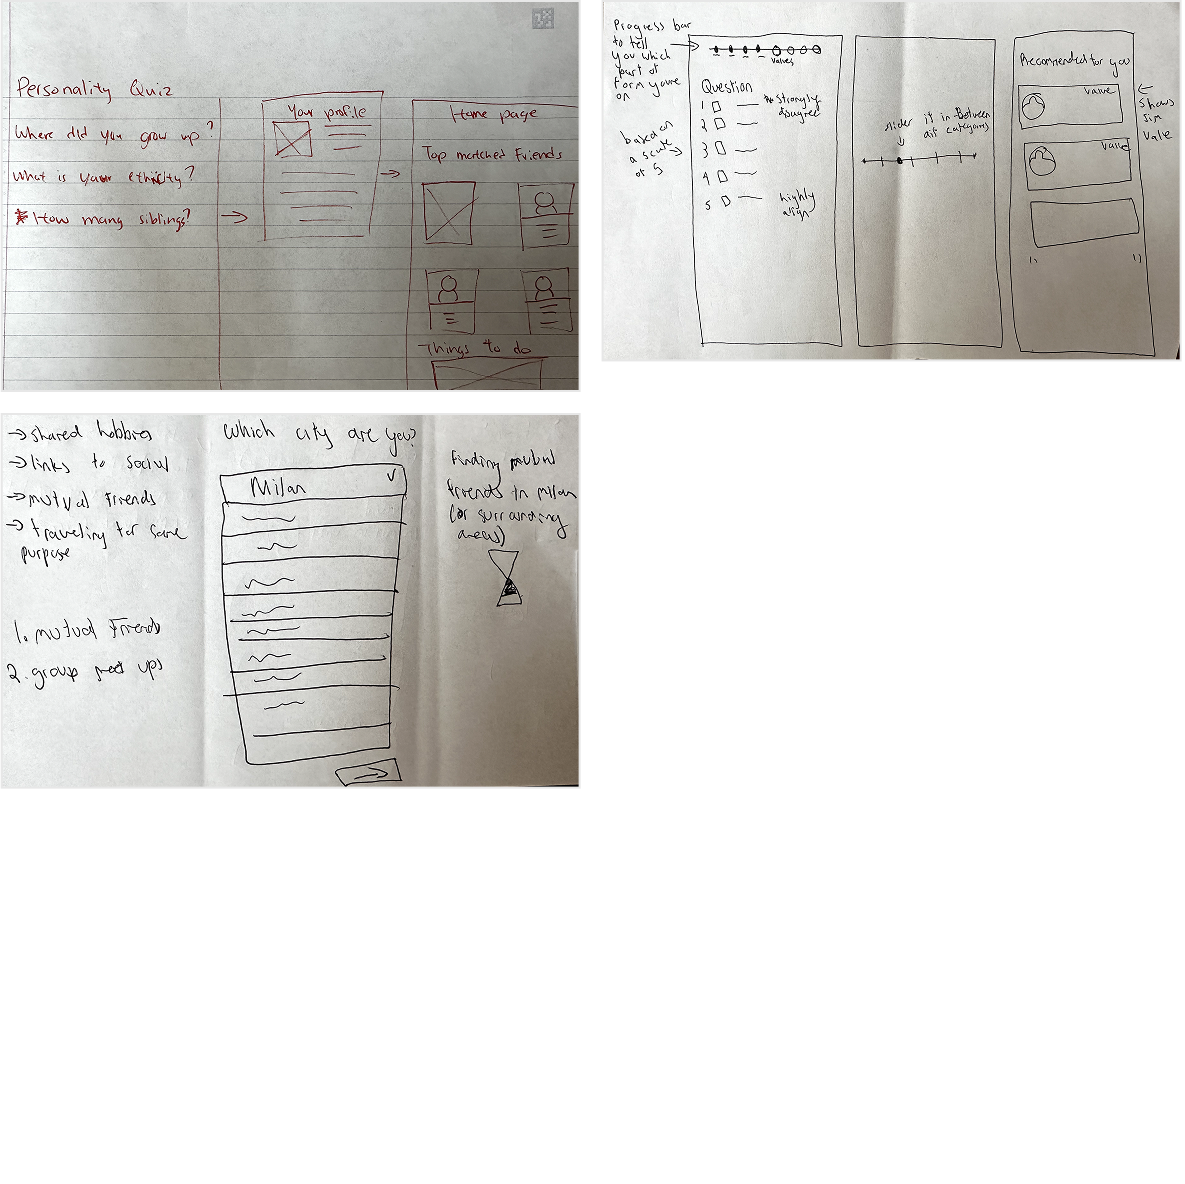 Personality Quiz
Where did you grow up?
What is your ethnicity?
* How many siblings?
Your profile
Home page
Top matched Friends
Things to do
Progress bar
to tell
you which
part of
form you're
on
based on
a scale
of 5
values
Question
1
2
3
4
5
** Strongly
disagree
highly
align
slider if in Between
dif categories
Recommended for you
value
value
Shows
sim
value
→ shared hobbies
→ links to social
→ mutual friends
→ traveling for same
purpose
1. mutual friends
2. group meet ups
Which city are you?
Milan
Finding mutual
friends in milan
(or surrounding
areas)